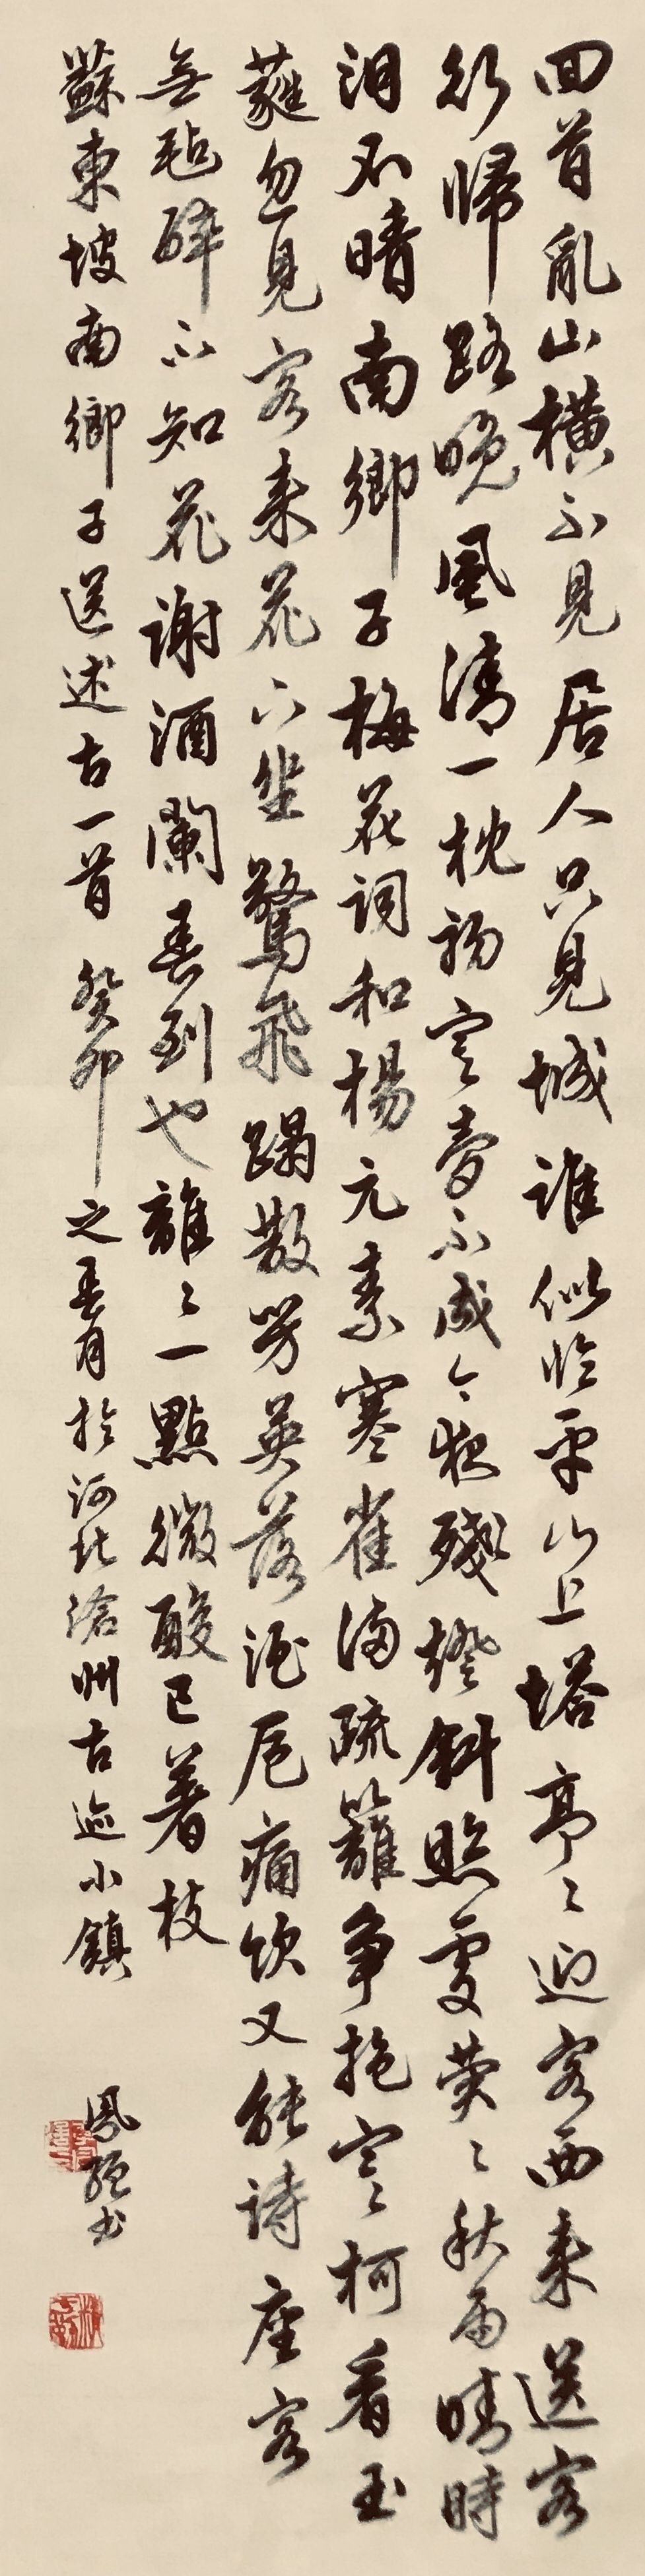 回首亂山橫不見居人只見城誰似臨平山上塔亭〻迎客西來送客
行歸路晚風清一枕初寒夢不成今夜殘燈斜照處熒〻秋雨晴時
淚不晴南鄉子梅花詞和楊元素寒雀滿疏籬爭抱寒柯看玉
蕤忽見客來花下坐驚飛蹋散芳英落酒卮痛飲又能詩座客
無氈醉不知花謝酒闌春到也離〻一點微酸已著枝
蘇東坡南鄉子送述古一首 癸卯之春月於河北滄州古迹小鎮
鳳 書